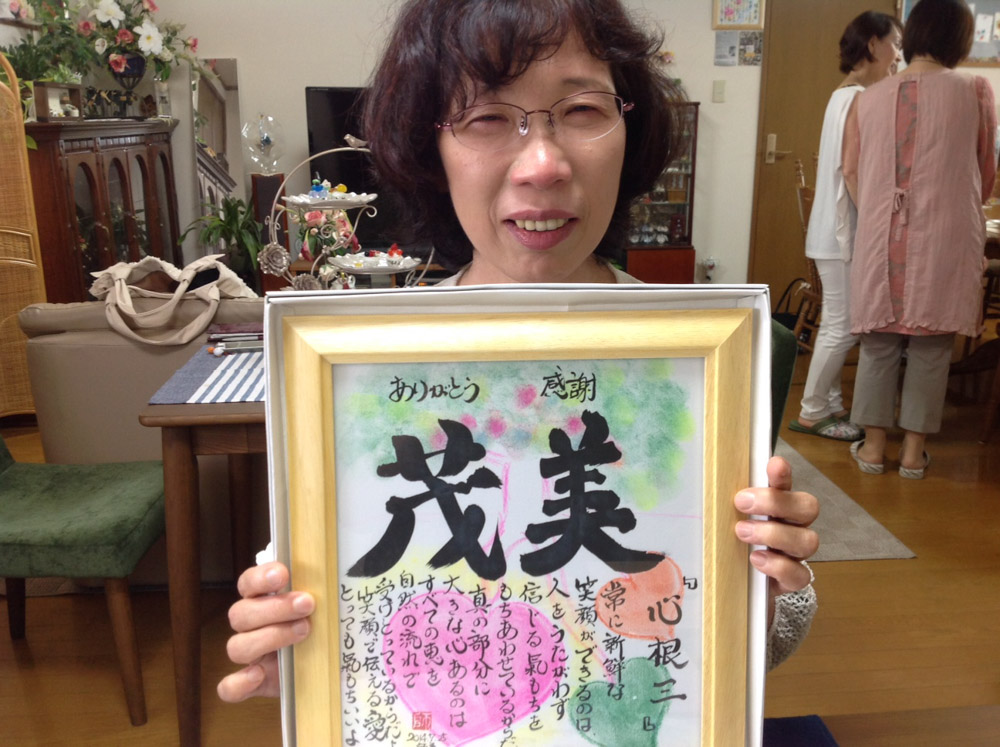 ありがとう 感謝
茂美
『心根三』
常に新鮮な
笑顔ができるのは、
人をうたがわず
信じる氣もちを
もちあわせているからだ
真の部分に
大きな心あるのは
すべての恵を
自然の流れで
受けとっているから
笑顔で伝える愛
とっても氣もちいいよ